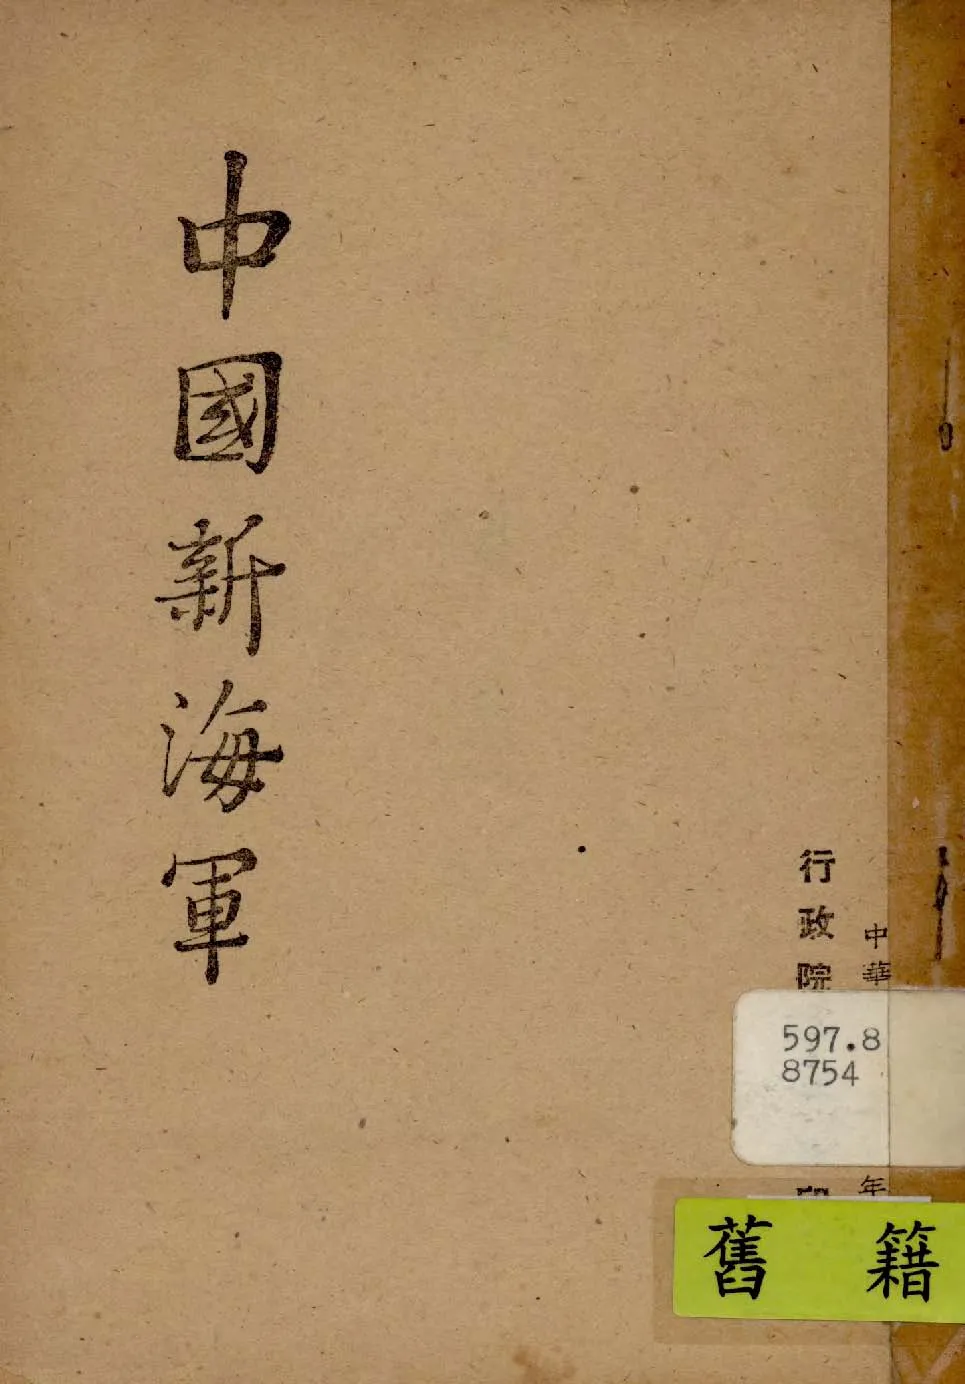 中國新海軍
行政院
中華
年
597.8
8754
舊籍